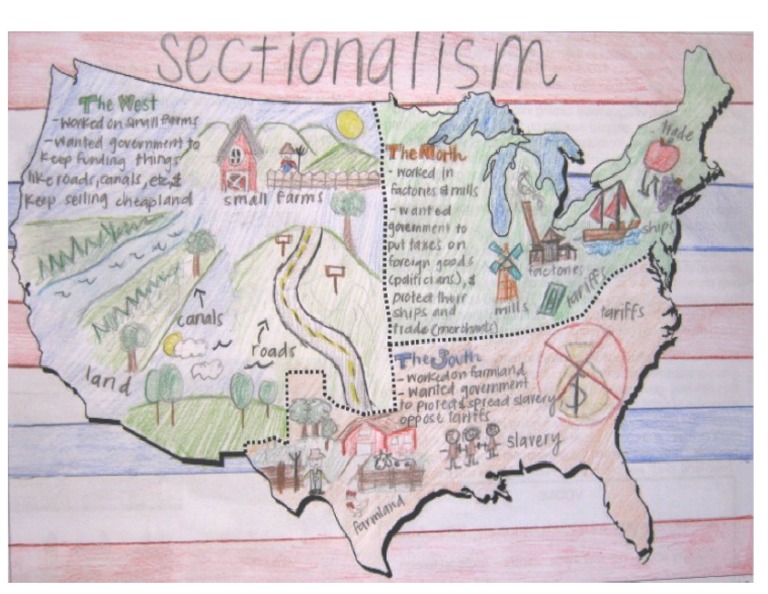 sectionalism
The West
- worked on small farms
- wanted government to
keep funding things
like roads, canals, etc, &
keep selling cheap land
small farms
canals
roads
land
The North
- worked in
factories & mills
- wanted
government to
put taxes on
foreign goods
(politicians), &
protect their
ships and
trade (merchants)
trade
ships
factories
mills
tariffs
tariffs
The South
- worked on farmland
- wanted government
to protect & spread slavery
oppose tariffs
$
slavery
farmland